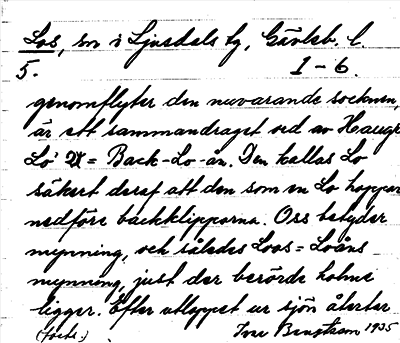 Los, sn i Ljusdals tg, Gävleb. l.
5. 1-6.
genomflyter den nuvarande socknen,
är ett sammandraget ord av Haugr
Lo = Back-Lo-ån. Den kallas Lo
säkert deraf att den som en Lo hoppar
nedföre backklipporna. Oss betyder
mynning, och således Loos = Loåns
mynning, just der berörde holme
ligger. Efter utloppet ur sjön återtar
(forts.) Ivar Bengtsson 1935